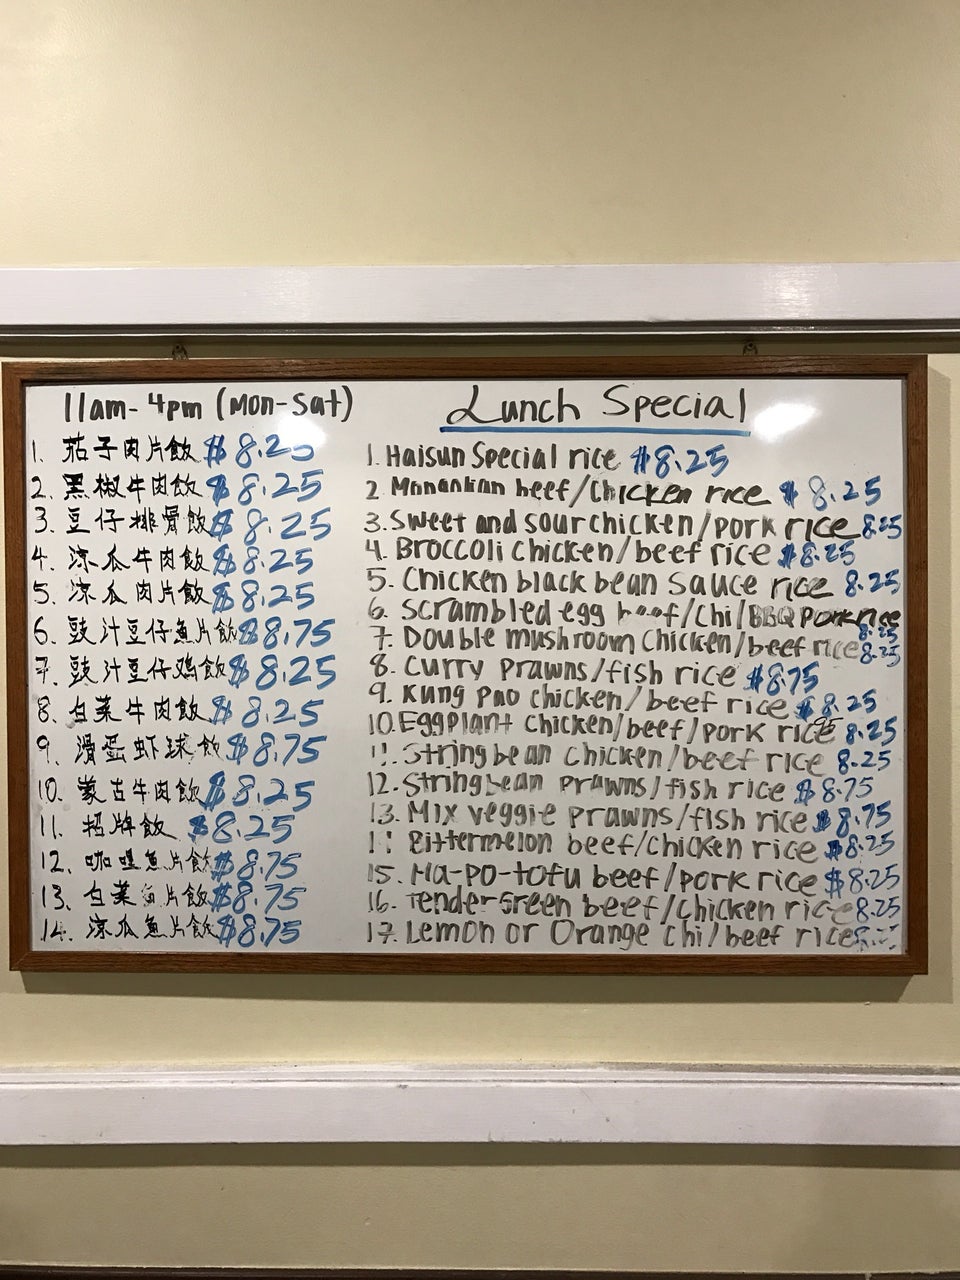 11am-4pm (Mon-Sat)
1. 茄子肉片飯 $8.25
2. 黑椒牛肉飯 $8.25
3. 豆仔排骨飯 $8.25
4. 涼瓜牛肉飯 $8.25
5. 涼瓜肉片飯 $8.25
6. 豉汁豆仔魚片飯 $8.75
7. 豉汁豆仔鸡飯 $8.25
8. 白菜牛肉飯 $8.25
9. 滑蛋虾球飯 $8.75
10. 蒙古牛肉飯 $8.25
11. 招牌飯 $8.25
12. 咖喱魚片飯 $8.75
13. 白菜魚片飯 $8.75
14. 涼瓜魚片飯 $8.75
Lunch Special
1. Haisun Special rice $8.25
2. beef/Chicken rice $8.25
3. Sweet and sour chicken/pork rice 8.25
4. Broccoli chicken/beef rice $8.25
5. Chicken black bean sauce rice 8.25
6. Scrambled egg beef/Chi/BBQ Pork rice 8.25
7. Double mushroom Chicken/beef rice 8.25
8. Curry Prawns/fish rice $8.75
9. Kung Pao chicken/beef rice $8.25
10. Eggplant chicken/beef/pork rice 8.25
11. String bean Chicken/beef rice 8.25
12. String bean Prawns/fish rice $8.75
13. Mix veggie prawns/fish rice $8.75
Bittermelon beef/Chicken rice $8.25
15. Ma-Po-tofu beef/pork rice $8.25
16. Tender Green beef/Chicken rice 8.25
17. Lemon or Orange chi/beef rice